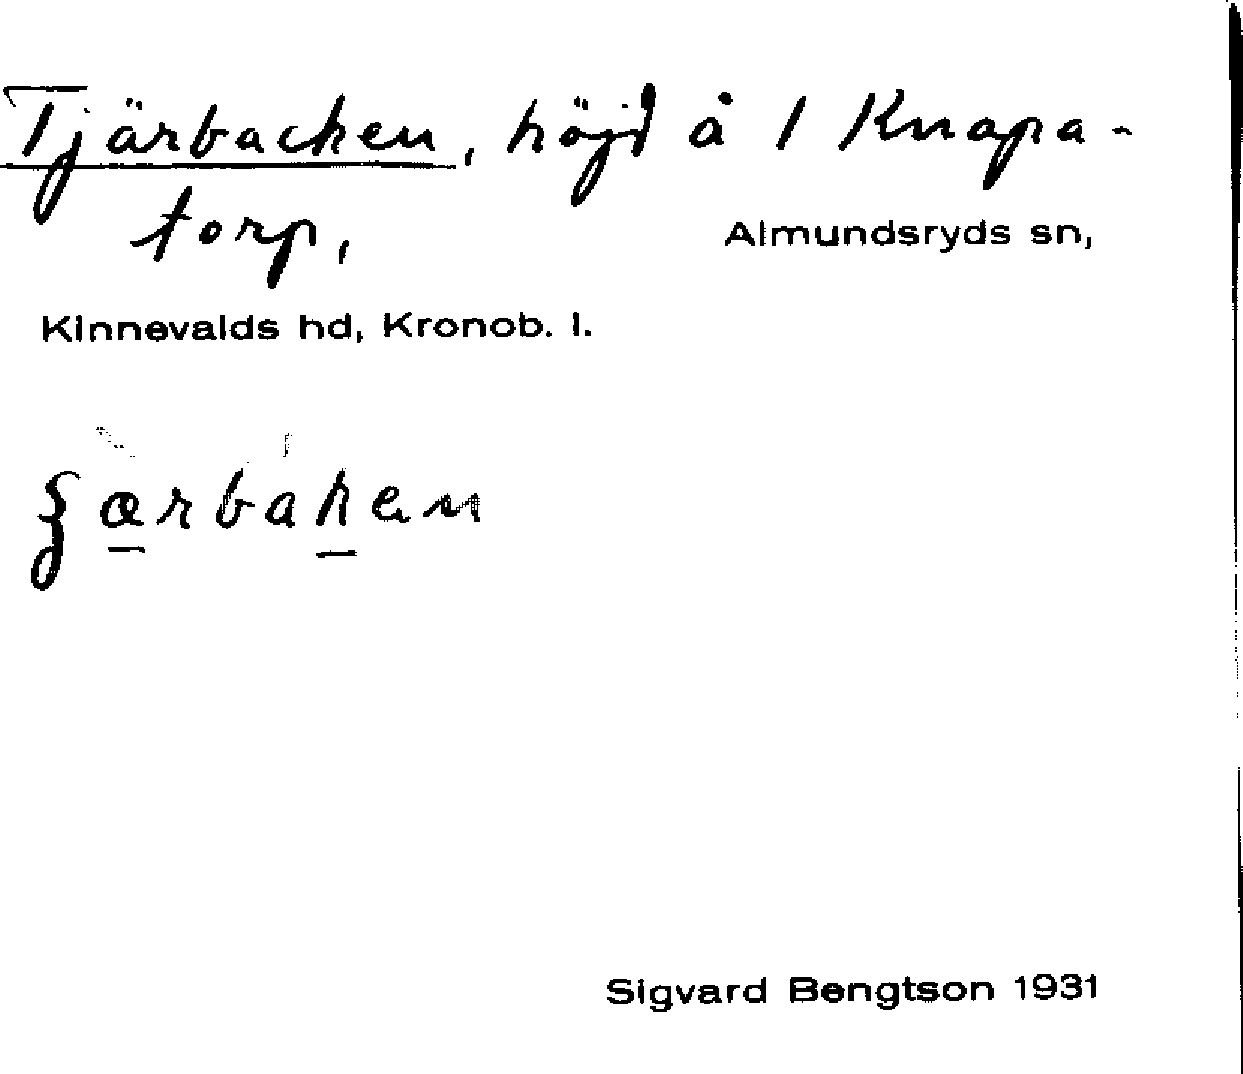 Tjärbacken, höjd å 1 Knapa-
torp,
Almundsryds sn,
Kinnevalds hd, Kronob. l.
ʒærbaken
Sigvard Bengtson 1931